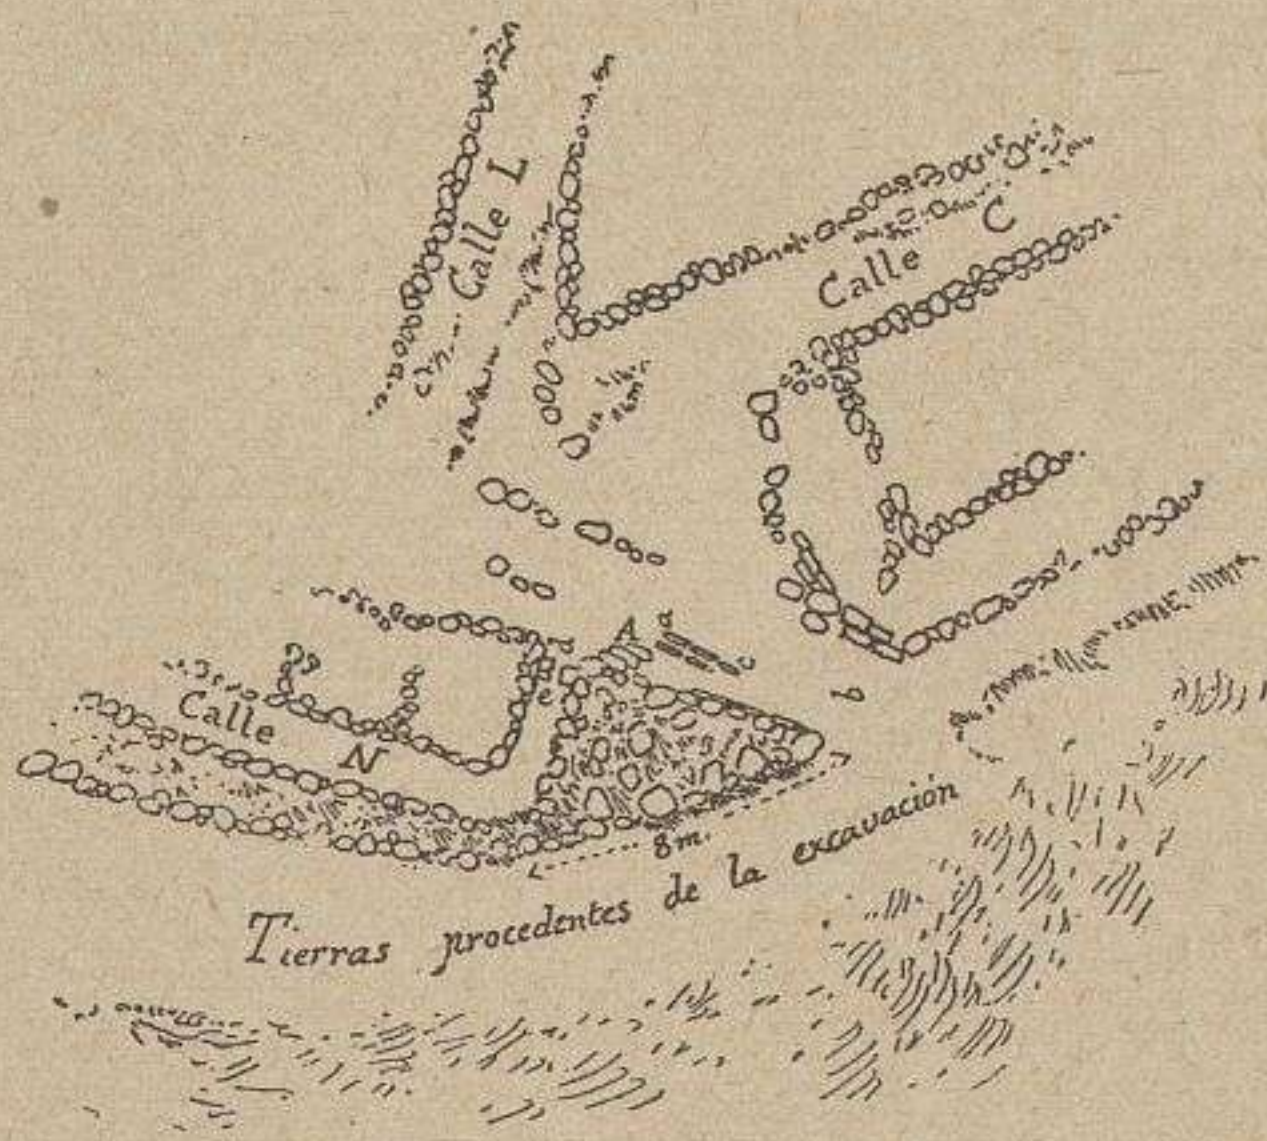 Calle L
Calle C
A
a
c
b
e
Calle N
8 m.
Tierras procedentes de la excavación